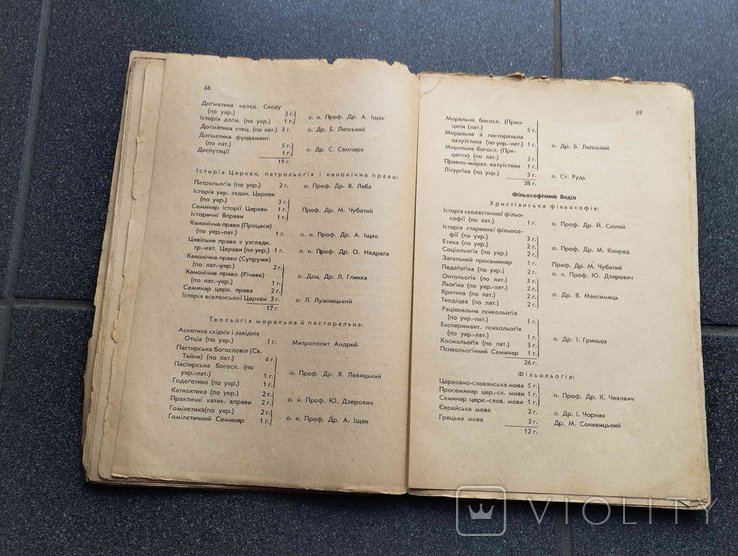 68
Догматика незєд. Сходу
(по укр.) 3 г.
Історія догм. (по укр.) 1 г. о. н. Проф. Др. А. Іщак
Догматика спец. (по лат.) 3 г. о. Др. Б. Липський
Догматика фундамент.
(по лат.) 5 г. о. Др. С. Сампара
Диспутації 1 г.
19 г.
Історія Церкви, патрольоґія і канонічне право:
Патрольоґія (по укр.) 2 г. о. Проф. Др. В. Лаба
Історія укр. зєдин. Церкви
(по укр.) 3 г.
Семинар історії Церкви 1 г. Проф. Др. М. Чубатий
Історичні Вправи 1 г.
Канонічне право (Процеси)
(по укр.-лат.) 1 г. о. н. Проф. Др. А. Іщак
Цивільне право з узгляди.
гр.-кат. Церкви (по укр.) 1 г. п. н. Проф. Др. О. Надраґа
Канонічне право (Супруже)
(по лат.) 2 г.
Канонічне право (Річеве) о. Доц. Др. Л. Глинка
(по лат.-укр.) 1 г.
Семинар церк. права 2 г.
Історія вселенської Церкви 3 г. о. Л. Лужницький
17 г.
Теольоґія моральна й пасторальна:
Аскетика східніх і західніх
Отців (по укр.) 1 г. Митрополит Андрей
Пастирська богословія (Св.
Тайни) (по лат.) 4 г.
Пастирська богосл. (по о. Проф. Др. Я. Левицький
укр.-лат.) 1 г.
Годеґетика (по укр.) 1 г.
Катихитика (по укр.) 2 г.
Практичні катих. вправи 2 г. о. н. Проф. Ю. Дзерович
Гомілєтика(по укр.) 2 г.
Гомілєтичний Семинар 1 г. о. н. Проф. Др. А. Іщак
69
Моральна богосл. (Прин-
ципи (лат.) 5 г.
Моральна й пасторальна
казуїстика (по укр.-лат.) 1 г. о. Др. Б. Липський
Моральна богосл. (При-
цепти) (по лат.) 2 г.
Правно-морал. казуїстика 1 г.
Літурґіка (по укр.) 5 г. о. Ст. Рудь
28 г.
Фільософічний Виділ
Християнська фільософія:
Історія схолястичної фільо-
софії (по лат.) 1 г. о. Проф. Др. Й. Сліпий
Історія старинної фільосо-
фії (по укр.) 3 г.
Етика (по укр.) 2 г. о. Проф. Др. М. Конрад
Соціольоґія (по укр.) 2 г.
Загальний просеминар 1 г. Проф. Др. М. Чубатий
Педаґоґіка (по укр.) 2 г. о. н. Проф. Ю. Дзерович
Онтольоґія (по лат.) 3 г.
Льоґіка (по укр.) 2 г.
Критика (по лат.) 2 г. о. Др. В. Максимець
Теодіцея (по лат.) 2 г.
Раціональна психольоґія
(по укр.-лат.) 1 г.
Експеримент. психольоґія
(по укр.-лат.) 1 г. о. Др. І. Гриньох
Космольоґія (по лат.) 3 г.
Психольоґічний Семинар 1 г.
26 г.
Фільольоґія:
Церковно-словянська мова 5 г.
Просеминар цер.-сл. мови 1 г. н. Проф. Др. К. Чехович
Семинар церк.-слов. мови 1 г.
Єврейська мова 2 г. о. Др. І. Чорняк
Грецька мова 3 г. Др. М. Соневицький
12 г.
VIOLITY